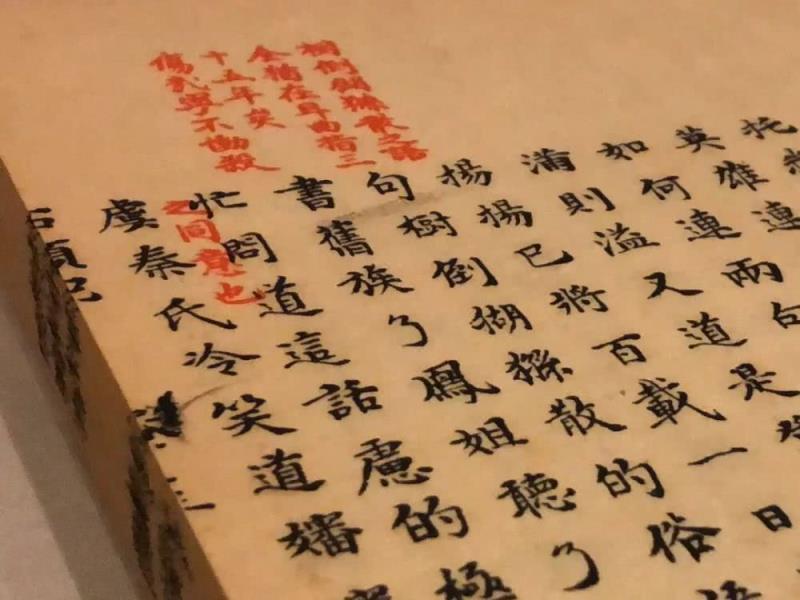 托
英雄連
如何連兩句
滿則溢又道是
揚揚已將百載一日
句樹倒猢猻散的俗
書舊族了鳳姐聽了
忙問道這話慮的極
虞秦氏冷笑道嬸
樹倒猢猻散之語
全猶在耳曲指三
十五年矣
傷哉寧不慟殺
之同意也